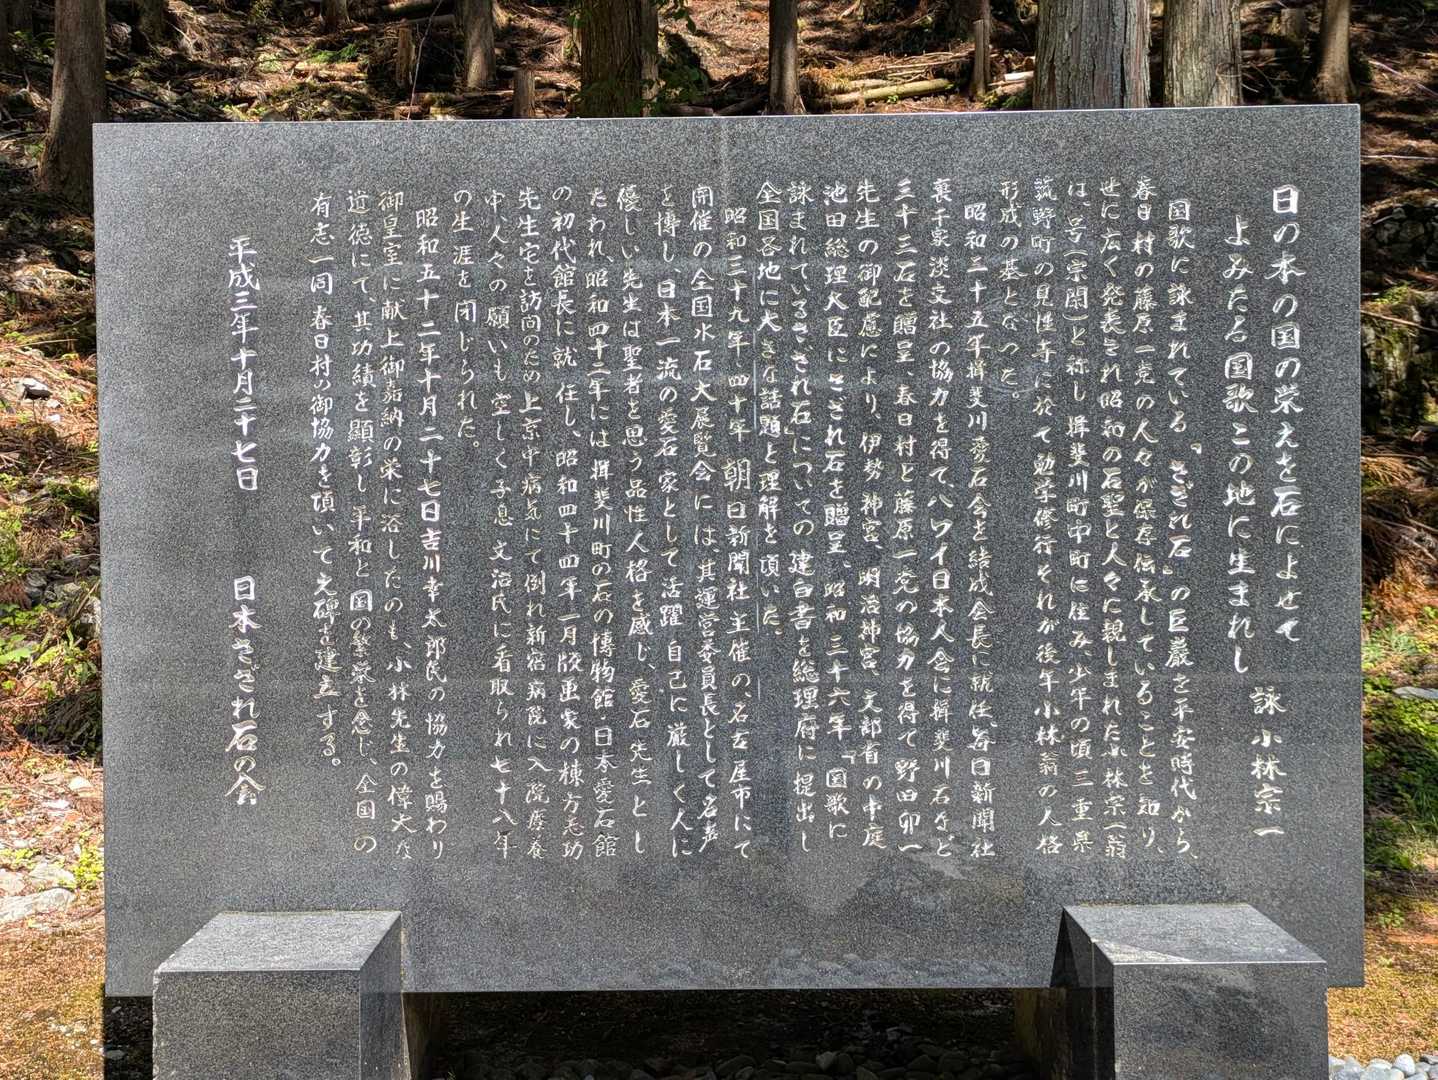 日の本の国の栄えを石によせて
よみたる国歌この地に生まれし
詠 小林宗一
国歌に詠まれている『さざれ石』の巨巌を平安時代から、
春日村の藤原一党の人々が保存伝承していることを知り、
世に広く発表され昭和の石聖と人々に親しまれた小林宗一翁
は、号(宗閑)と称し揖斐川町中町に住み、少年の頃三重県
菰野町の見性寺に於て勉学修行それが後年小林翁の人格
形成の基となった。
昭和三十五年揖斐川愛石会を結成会長に就任、毎日新聞社
裏千家淡交社の協力を得て、ハワイ日本人会に揖斐川石など
三十三石を贈呈、春日村と藤原一党の協力を得て野田卯一
先生の御配慮により、伊勢神宮、明治神宮、文部省の中庭
池田総理大臣にさざれ石を贈呈、昭和三十六年『国歌に
詠まれているさざれ石』についての建白書を総理府に提出し
全国各地に大きな話題と理解を頂いた。
昭和三十九年、四十年朝日新聞社主催の、名古屋市にて
開催の全国水石大展覧会には、其運営委員長として名声
を博し、日本一流の愛石家として活躍自己に厳しく人に
優しい先生は聖者を思う品性人格を感じ、愛石先生とし
たわれ、昭和四十二年には揖斐川町の石の博物館・日本愛石館
の初代館長に就任し、昭和四十四年一月版画家の棟方志功
先生宅を訪問のため上京中病気にて倒れ新宿病院に入院療養
中、人々の願いも空しく子息文治氏に看取られ七十八年
の生涯を閉じられた。
昭和五十二年十月二十七日吉川幸太郎氏の協力を賜わり
御皇室に献上御嘉納の栄に浴したのも、小林先生の偉大な
道徳にて、其功績を顕彰し平和と国の繁栄を念じ、全国の
有志一同春日村の御協力を頂いて之碑を建立する。
平成三年十月二十七日 日本さざれ石の会